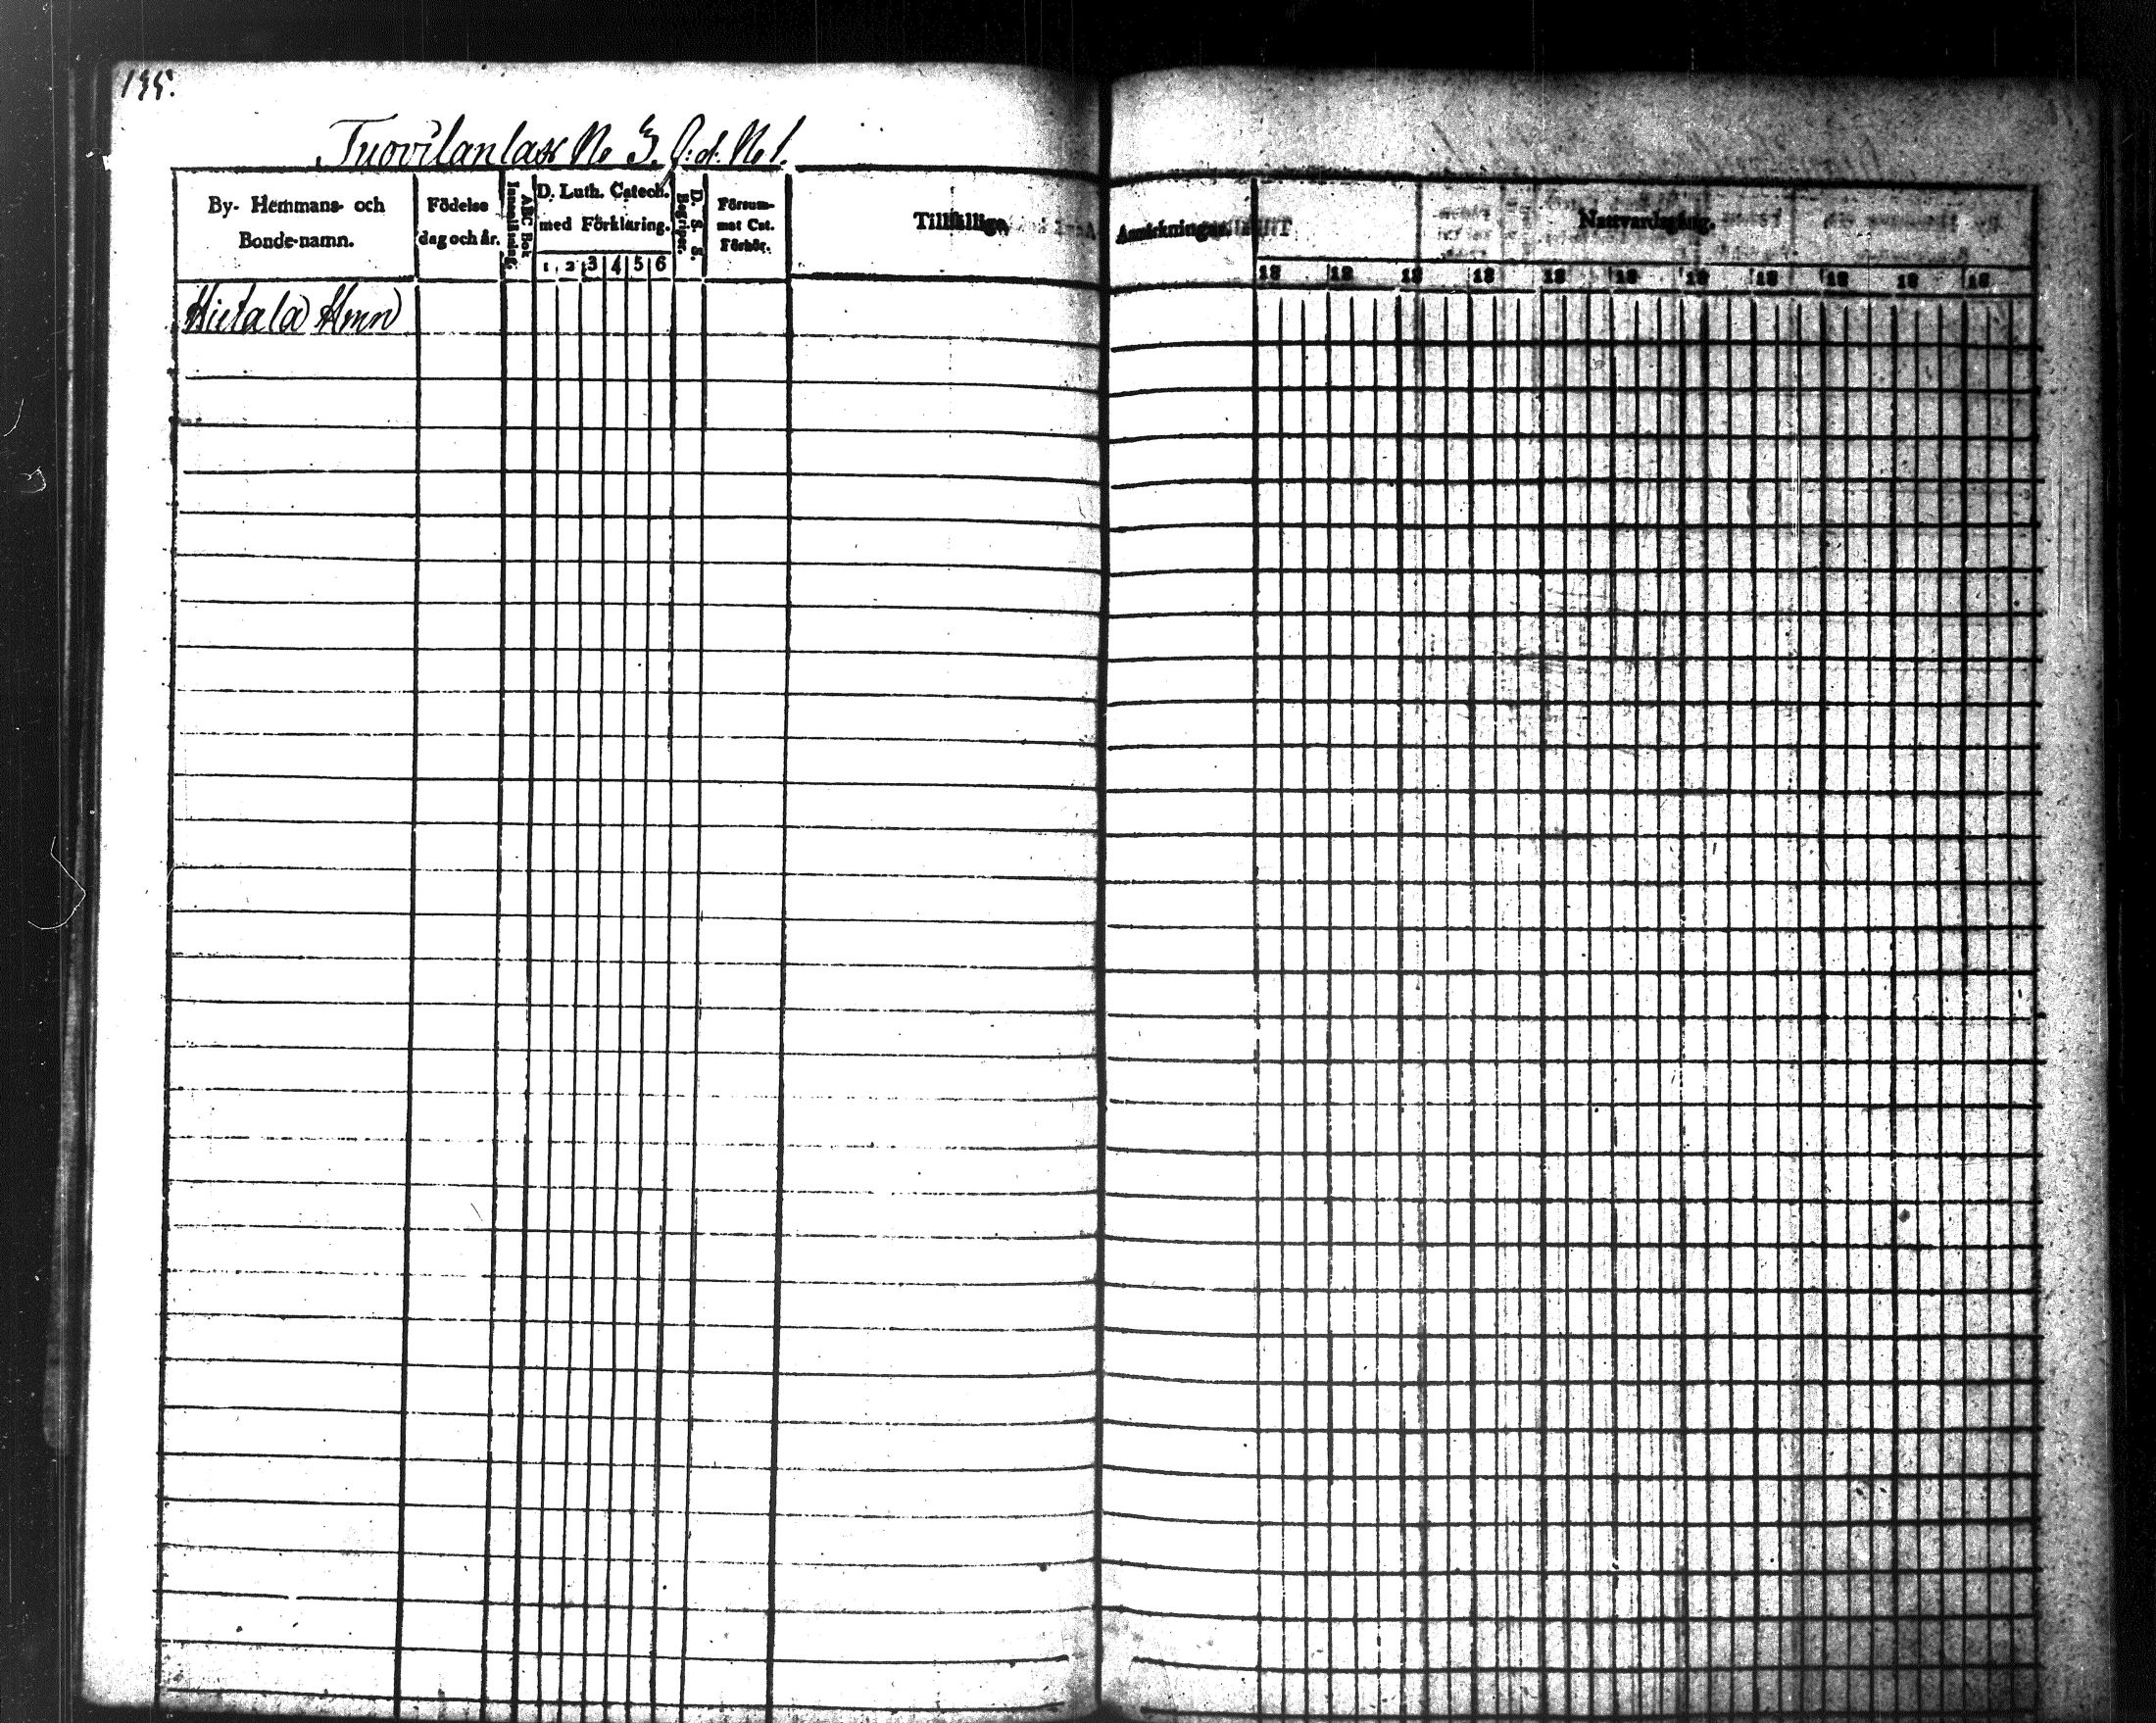 Tuovilanlax No 3. No 1.
By- Hemmans- och
Bonde-namn.
Födelse
dag och år.
ABC Bok
Innanläsning.
D. Luth. Catech.
med Förklaring.
1 2 3 4 5 6
D. S. S.
Begriper.
Försum-
mat Cat.
Förhör.
Tillfällige
Anmärkningar.
Nattvardsgång.
18 18 18 18 18 18 18 18 18 18 18
Hietala Hmn